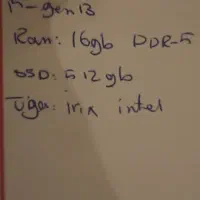 i5-gen13
Ram: 16gb DDR-5
SSD: 512gb
irix intel